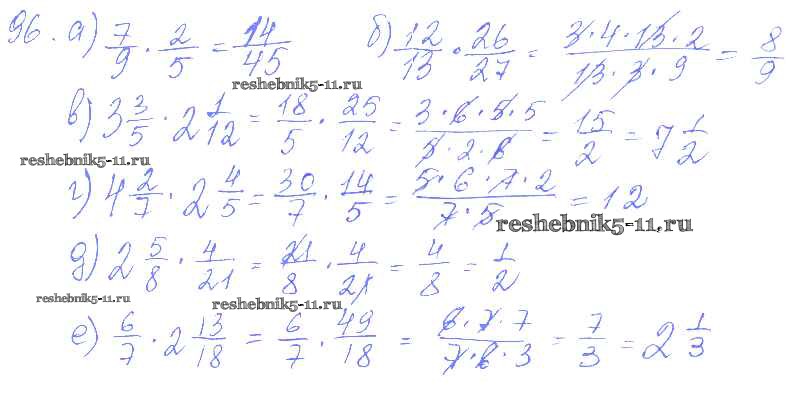 96. а) 7/9 · 2/5 = 14/45 б) 12/13 · 26/27 = 3·4·13·2/13·3·9 = 8/9
reshebnik5-11.ru
в) 3 3/5 · 2 1/12 = 18/5 · 25/12 = 3·6·5·5/5·2·6 = 15/2 = 7 1/2
reshebnik5-11.ru
г) 4 2/7 · 2 4/5 = 30/7 · 14/5 = 5·6·7·2/7·5 = 12
reshebnik5-11.ru
д) 2 5/8 · 4/21 = 21/8 · 4/21 = 4/8 = 1/2
reshebnik5-11.ru reshebnik5-11.ru
е) 6/7 · 2 13/18 = 6/7 · 49/18 = 6·7·7/7·6·3 = 7/3 = 2 1/3